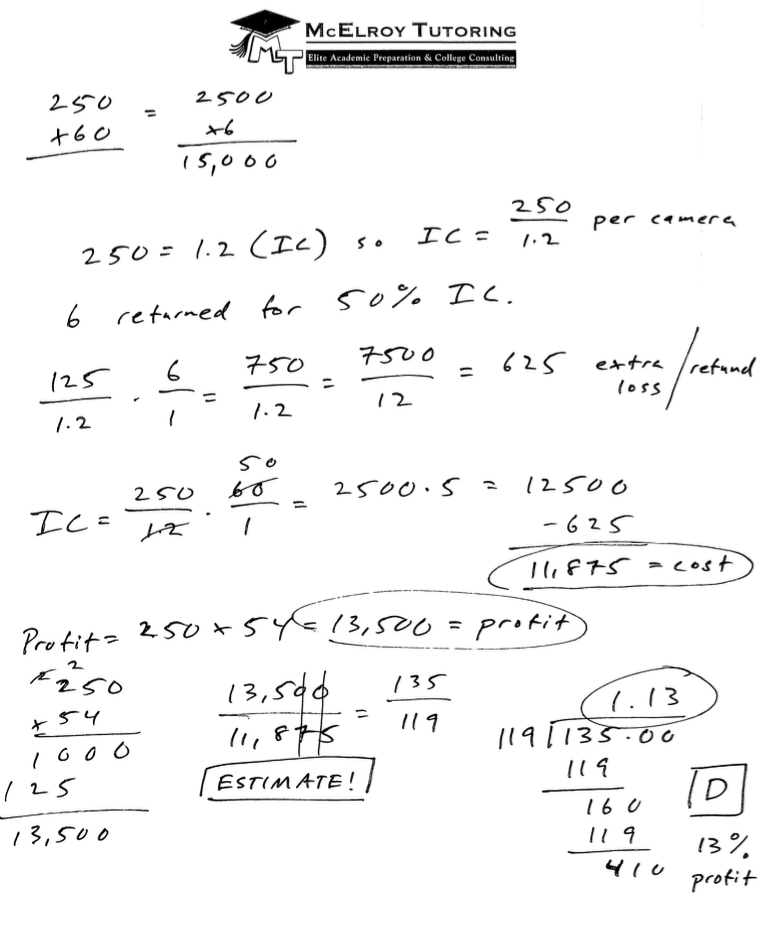 McELROY TUTORING
MT
Elite Academic Preparation & College Consulting
250 = 2500
×60 ×6
15,000
250 = 1.2 (IC) so IC = 250/1.2 per camera
6 returned for 50% IC.
125/1.2 · 6/1 = 750/1.2 = 7500/12 = 625 extra loss / refund
50
IC = 250/12 · 60/1 = 2500 · 5 = 12500
-625
11,875 = cost
Profit = 250 × 54 = 13,500 = profit
2
250
× 54
1000
125
13,500
13,500/11,875 = 135/119
ESTIMATE!
1.13
119 135.00
119
160
119
410
D
13%
profit